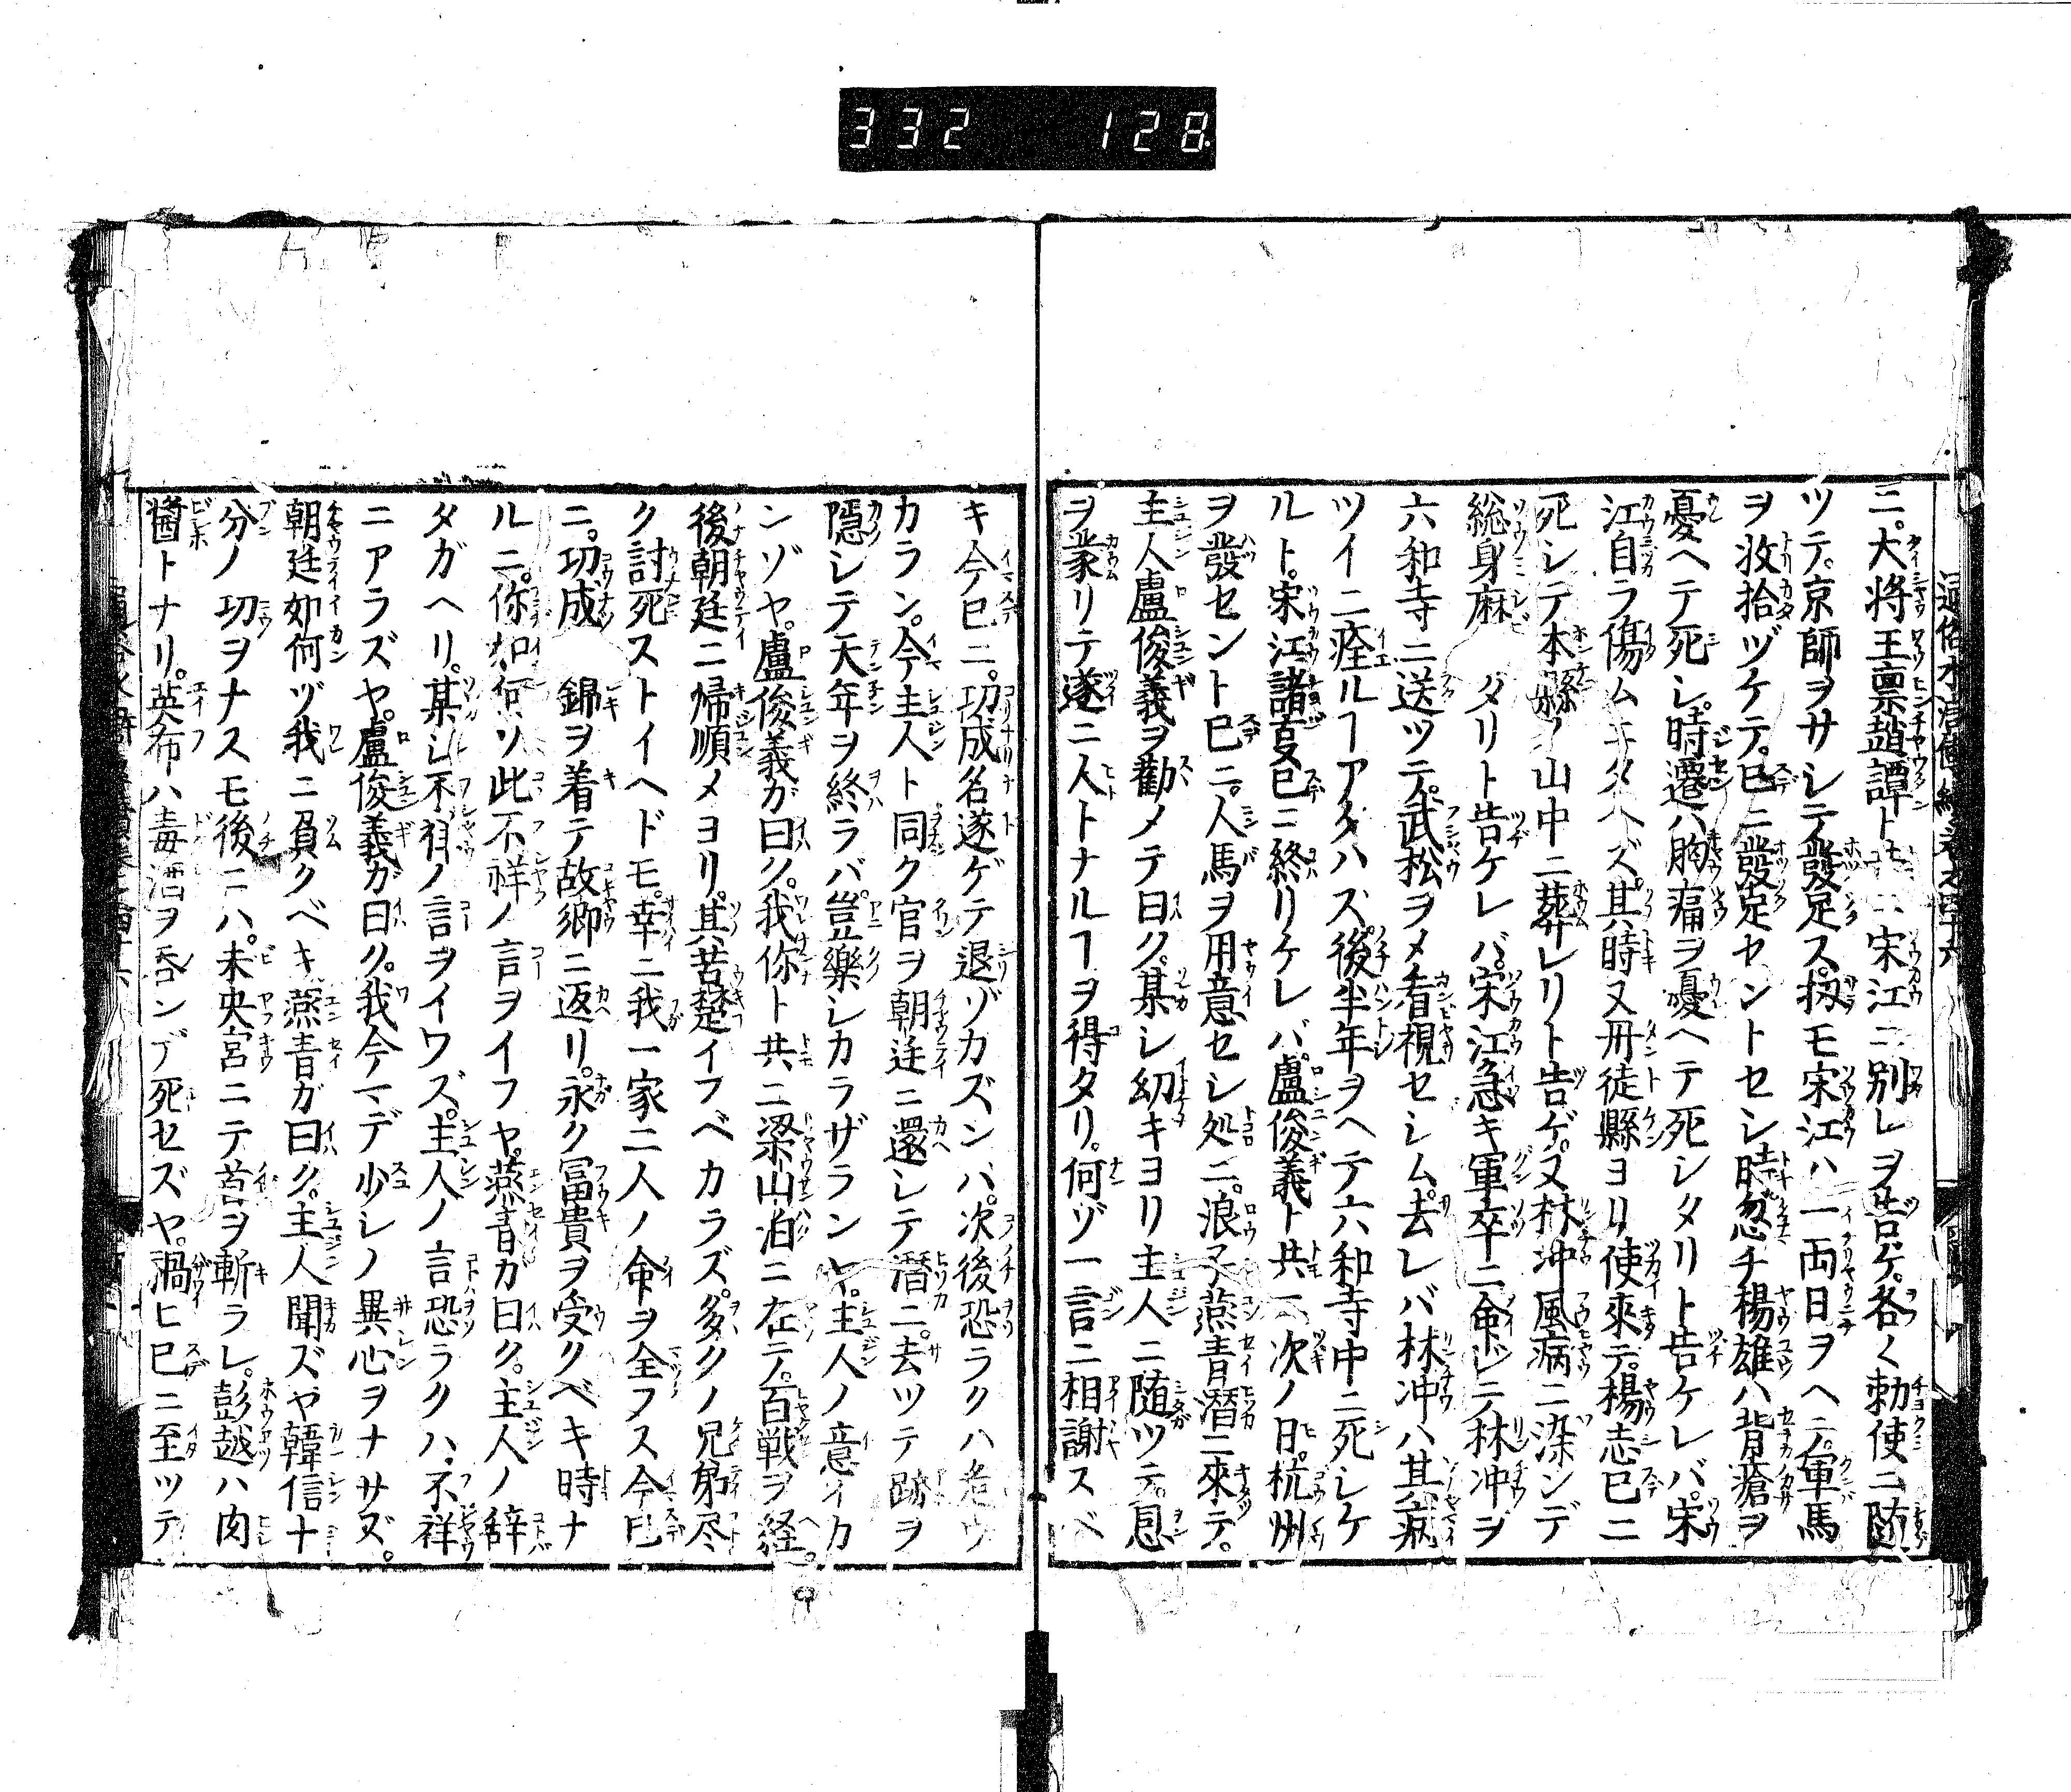 332 128
ニ。大将王禀趙譚トモニ宋江ニ別レヲ告ゲ。各〱勅使ニ随
ツテ。京師ヲサシテ發足ス。扨モ宋江ハ一両日ヲヘテ。軍馬
ヲ收拾ヅケテ。已ニ發足セントセシ時。忽チ楊雄ハ背瘡ヲ
憂ヘテ死シ。時遷ハ胸痛ヲ憂ヘテ死シタリト告ケレバ。宋
江自ラ傷ムニタヘズ。其時又丹徒縣ヨリ使來テ。楊志已ニ
死シテ本縣ノ山中ニ葬レリト告ゲ。又林冲風病ニ染ンデ
総身麻タリト告ケレバ。宋江急キ軍卒ニ命シテ林冲ヲ
六和寺ニ送ツテ。武松ヲメ看視セシム。去レバ林冲ハ其病
ツイニ痊ルヿアタハス。後半年ヲヘテ六和寺中ニ死シケ
ルト。宋江諸事已ニ終リケレバ。盧俊義ト共ニ次ノ日。杭州
ヲ發セント已ニ。人馬ヲ用意セシ処ニ。浪子燕青潜ニ來テ。
主人盧俊義ヲ勸メテ曰ク。某シ幼キヨリ主人ニ随ツテ。恩
ヲ蒙リテ遂ニ人トナルヿヲ得タリ。何ヅ一言ニ相謝スベ
キ今已ニ。切成名遂ゲテ退ゾカズンバ。次後恐ラクハ危ウ
カラン。今主人ト同ク官ヲ朝廷ニ還シテ潜ニ。去ツテ跡ヲ
隱シテ天年ヲ終ラバ豈樂シカラザランヤ。主人ノ意イカ
ンゾヤ。盧俊義ガ曰ク。我你ト共ニ梁山泊ニ在テ。百戰ヲ経。
後朝廷ニ帰順メヨリ。其苦楚イフベカラズ。多クノ兄弟尽
ク討死ストイヘドモ。幸ニ我一家二人ノ命ヲ全フス今已
ニ。切成錦ヲ着テ故郷ニ返リ。永ク冨貴ヲ受クベキ時ナ
ルニ。你如何ソ此不祥ノ言ヲイフヤ。燕青カ曰ク。主人ノ辞
タガヘリ。某シ不祥ノ言ヲイワズ。主人ノ言恐ラクハ。不祥
ニアラズヤ。盧俊義ガ曰ク。我今マデ少シノ異心ヲナサズ。
朝廷如何ヅ我ニ負クベキ。燕青ガ曰ク。主人聞ズヤ韓信十
分ノ切ヲナスモ後ニハ。未央宮ニテ首ヲ斬ラレ。彭越ハ肉
醬トナリ。英布ハ毒酒ヲ呑ンデ死セズヤ。禍ヒ已ニ至ツテ